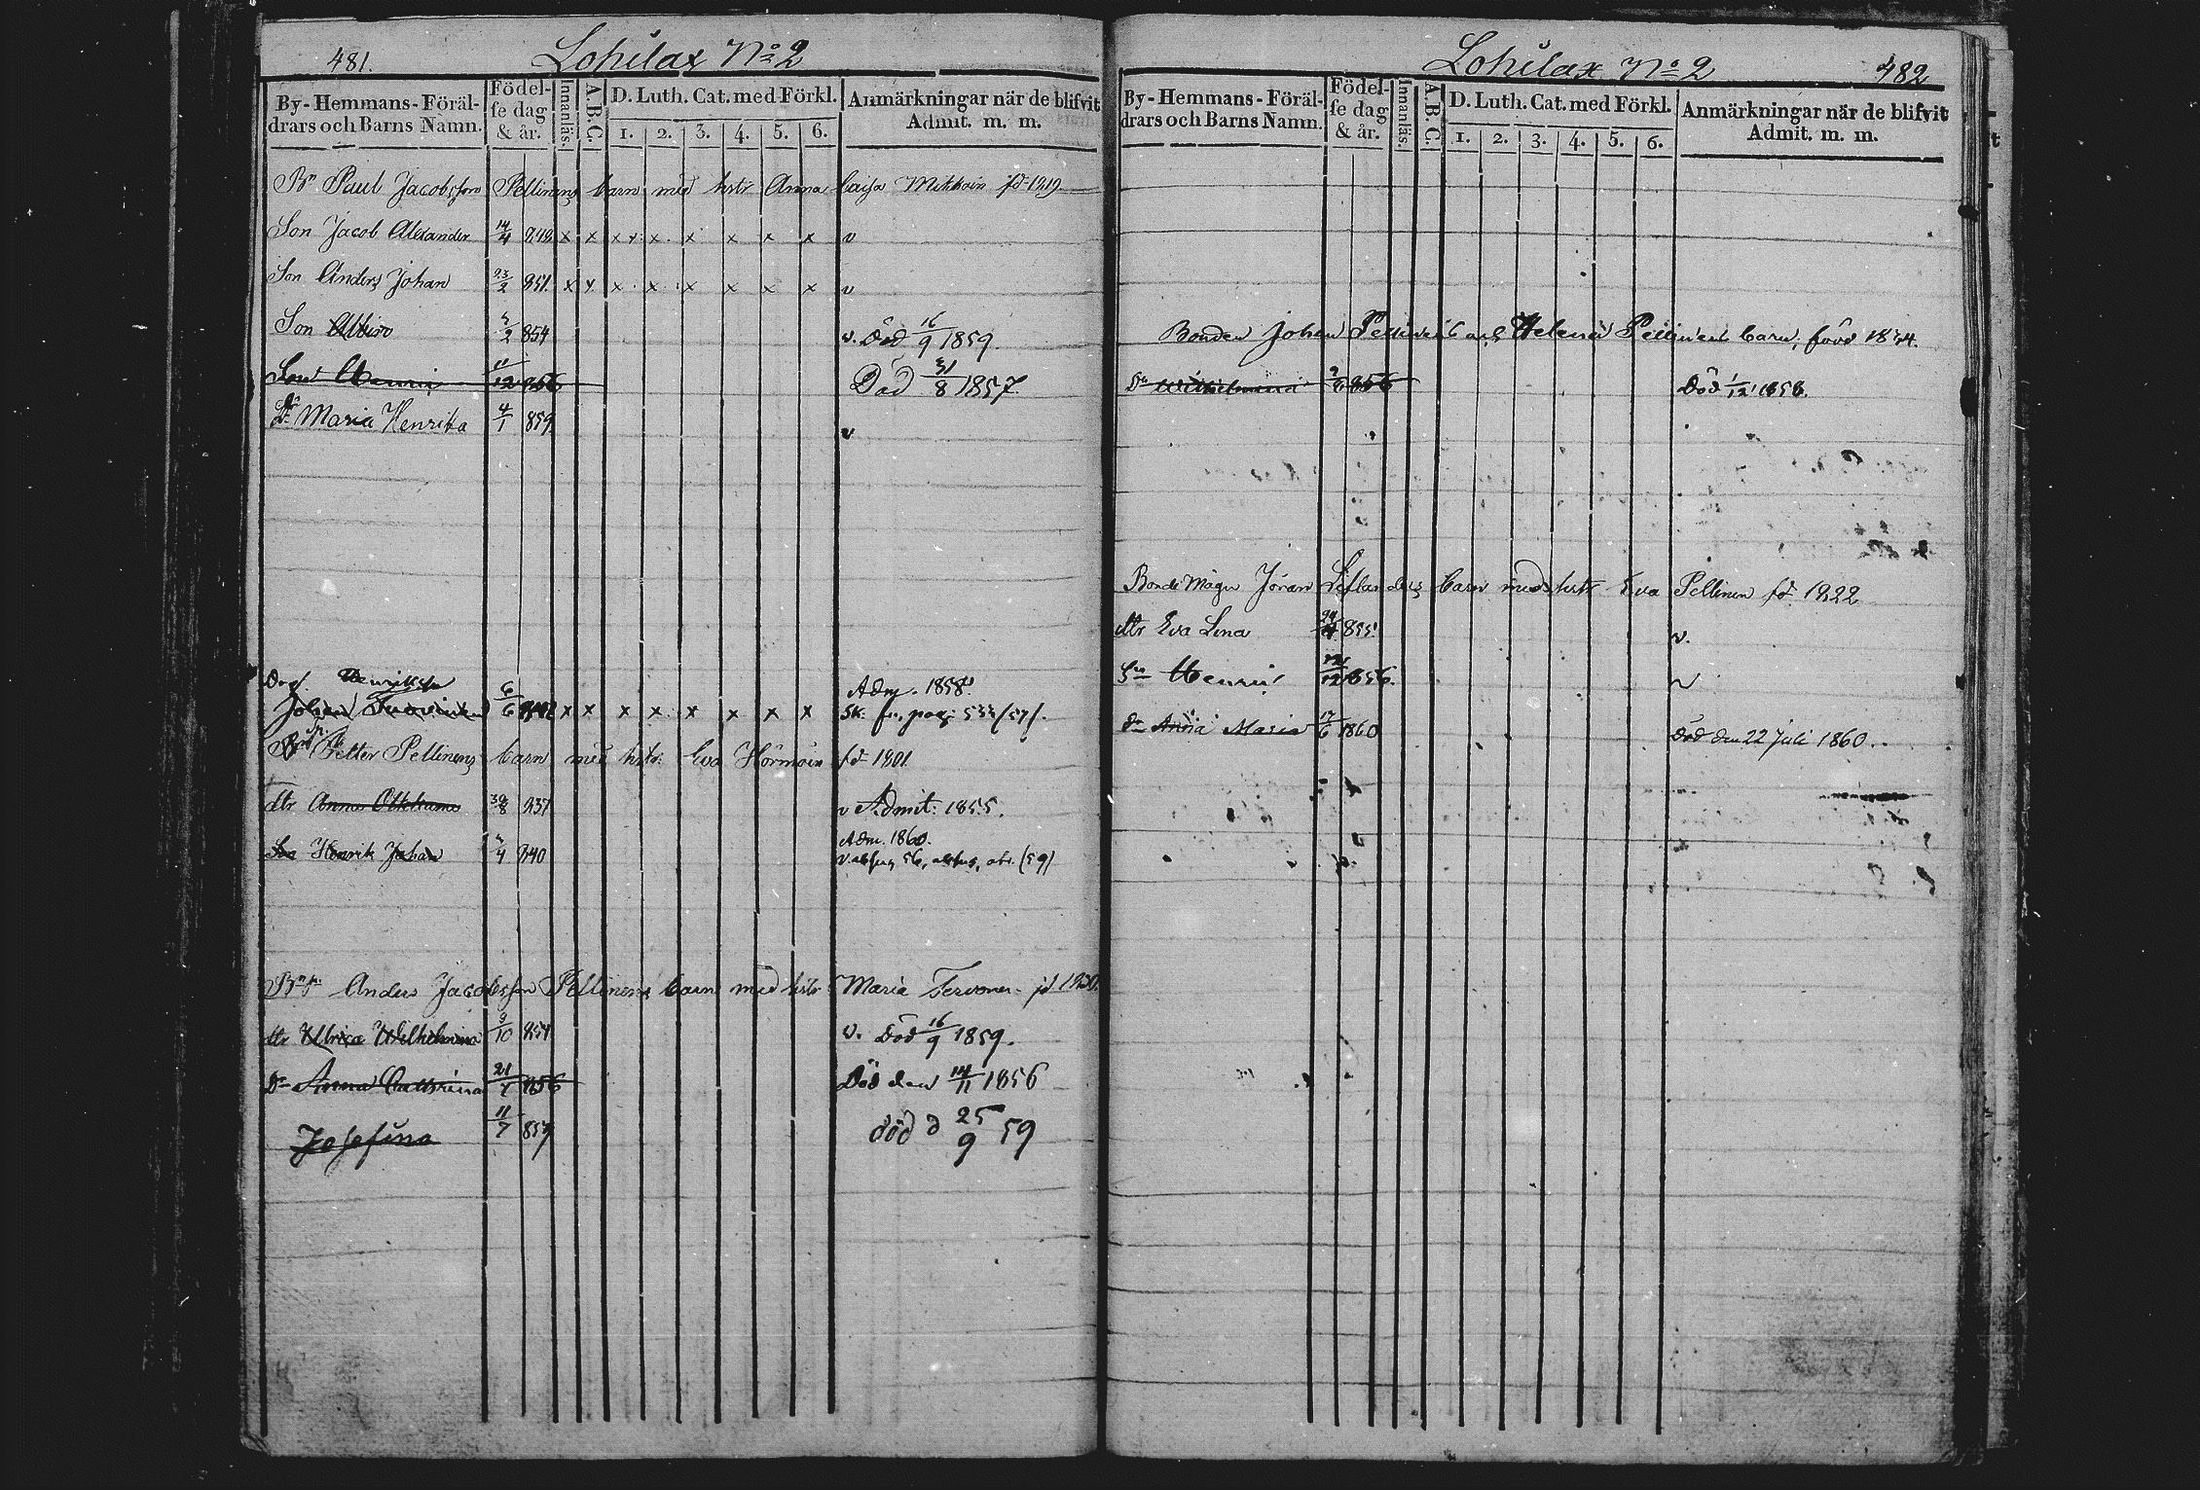 481.
Lohilax No 2
By-Hemmans-Föräl-
drars och Barns Namn.
Födel-
se dag
& år.
Innanläs.
A.B.C.
D. Luth. Cat. med Förkl.
1. 2. 3. 4. 5. 6.
Anmärkningar när de blifvit
Admit. m. m.
Bn Paul Jacobsson Pellinens barn med hstr Anna Caisa fd 1819
Son Jacob Alexander 14/4 848 x x x x x x x x v
Son Anders Johan 23/2 851. x x x x x x x x v
Son Albin 2 854 v. Död 16/9 1859.
Son Henric 11/12 856 Död 31/8 1857.
Dr Maria Henrika 4/1 859. v
Henriksson
Johan 6/6 x x x x x x x x
Adm. 1858.
sk. fr. pag: 533/57/.
Petter Pellinens barn med hstr. Eva fd 1801
dtr Anna 30/8 837 v Admit: 1855.
Son Henrik Johan 4 840
Adm. 1860.
Anders Jacobsson Pellinens barn med hstr Maria Tervonen fd 1830.
dtr Ulrica Wilhelmina 9/10 854 v. Död 16/9 1859.
Dr Anna Cathrina 21 856 Död den 14/11 1856
Josefina 11/7 857 död d 25/9 59
Lohilax No 2
482
By-Hemmans-Föräl-
drars och Barns Namn.
Födel-
se dag
& år.
Innanläs.
A.B.C.
D. Luth. Cat. med Förkl.
1. 2. 3. 4. 5. 6.
Anmärkningar när de blifvit
Admit. m. m.
Bonden Johan Pellinens och Helena Pellinens barn, född 1834.
Dr Wilhelmina 856 Död 1/12 1856.
Bonde Mågen Jöran barn med hstr Eva Pellinen fd. 1822
dtr Eva Lena 855. v.
Sn Henric 12 856. v
dr Anna Maria 17/6 1860 Död den 22 Juli 1860.